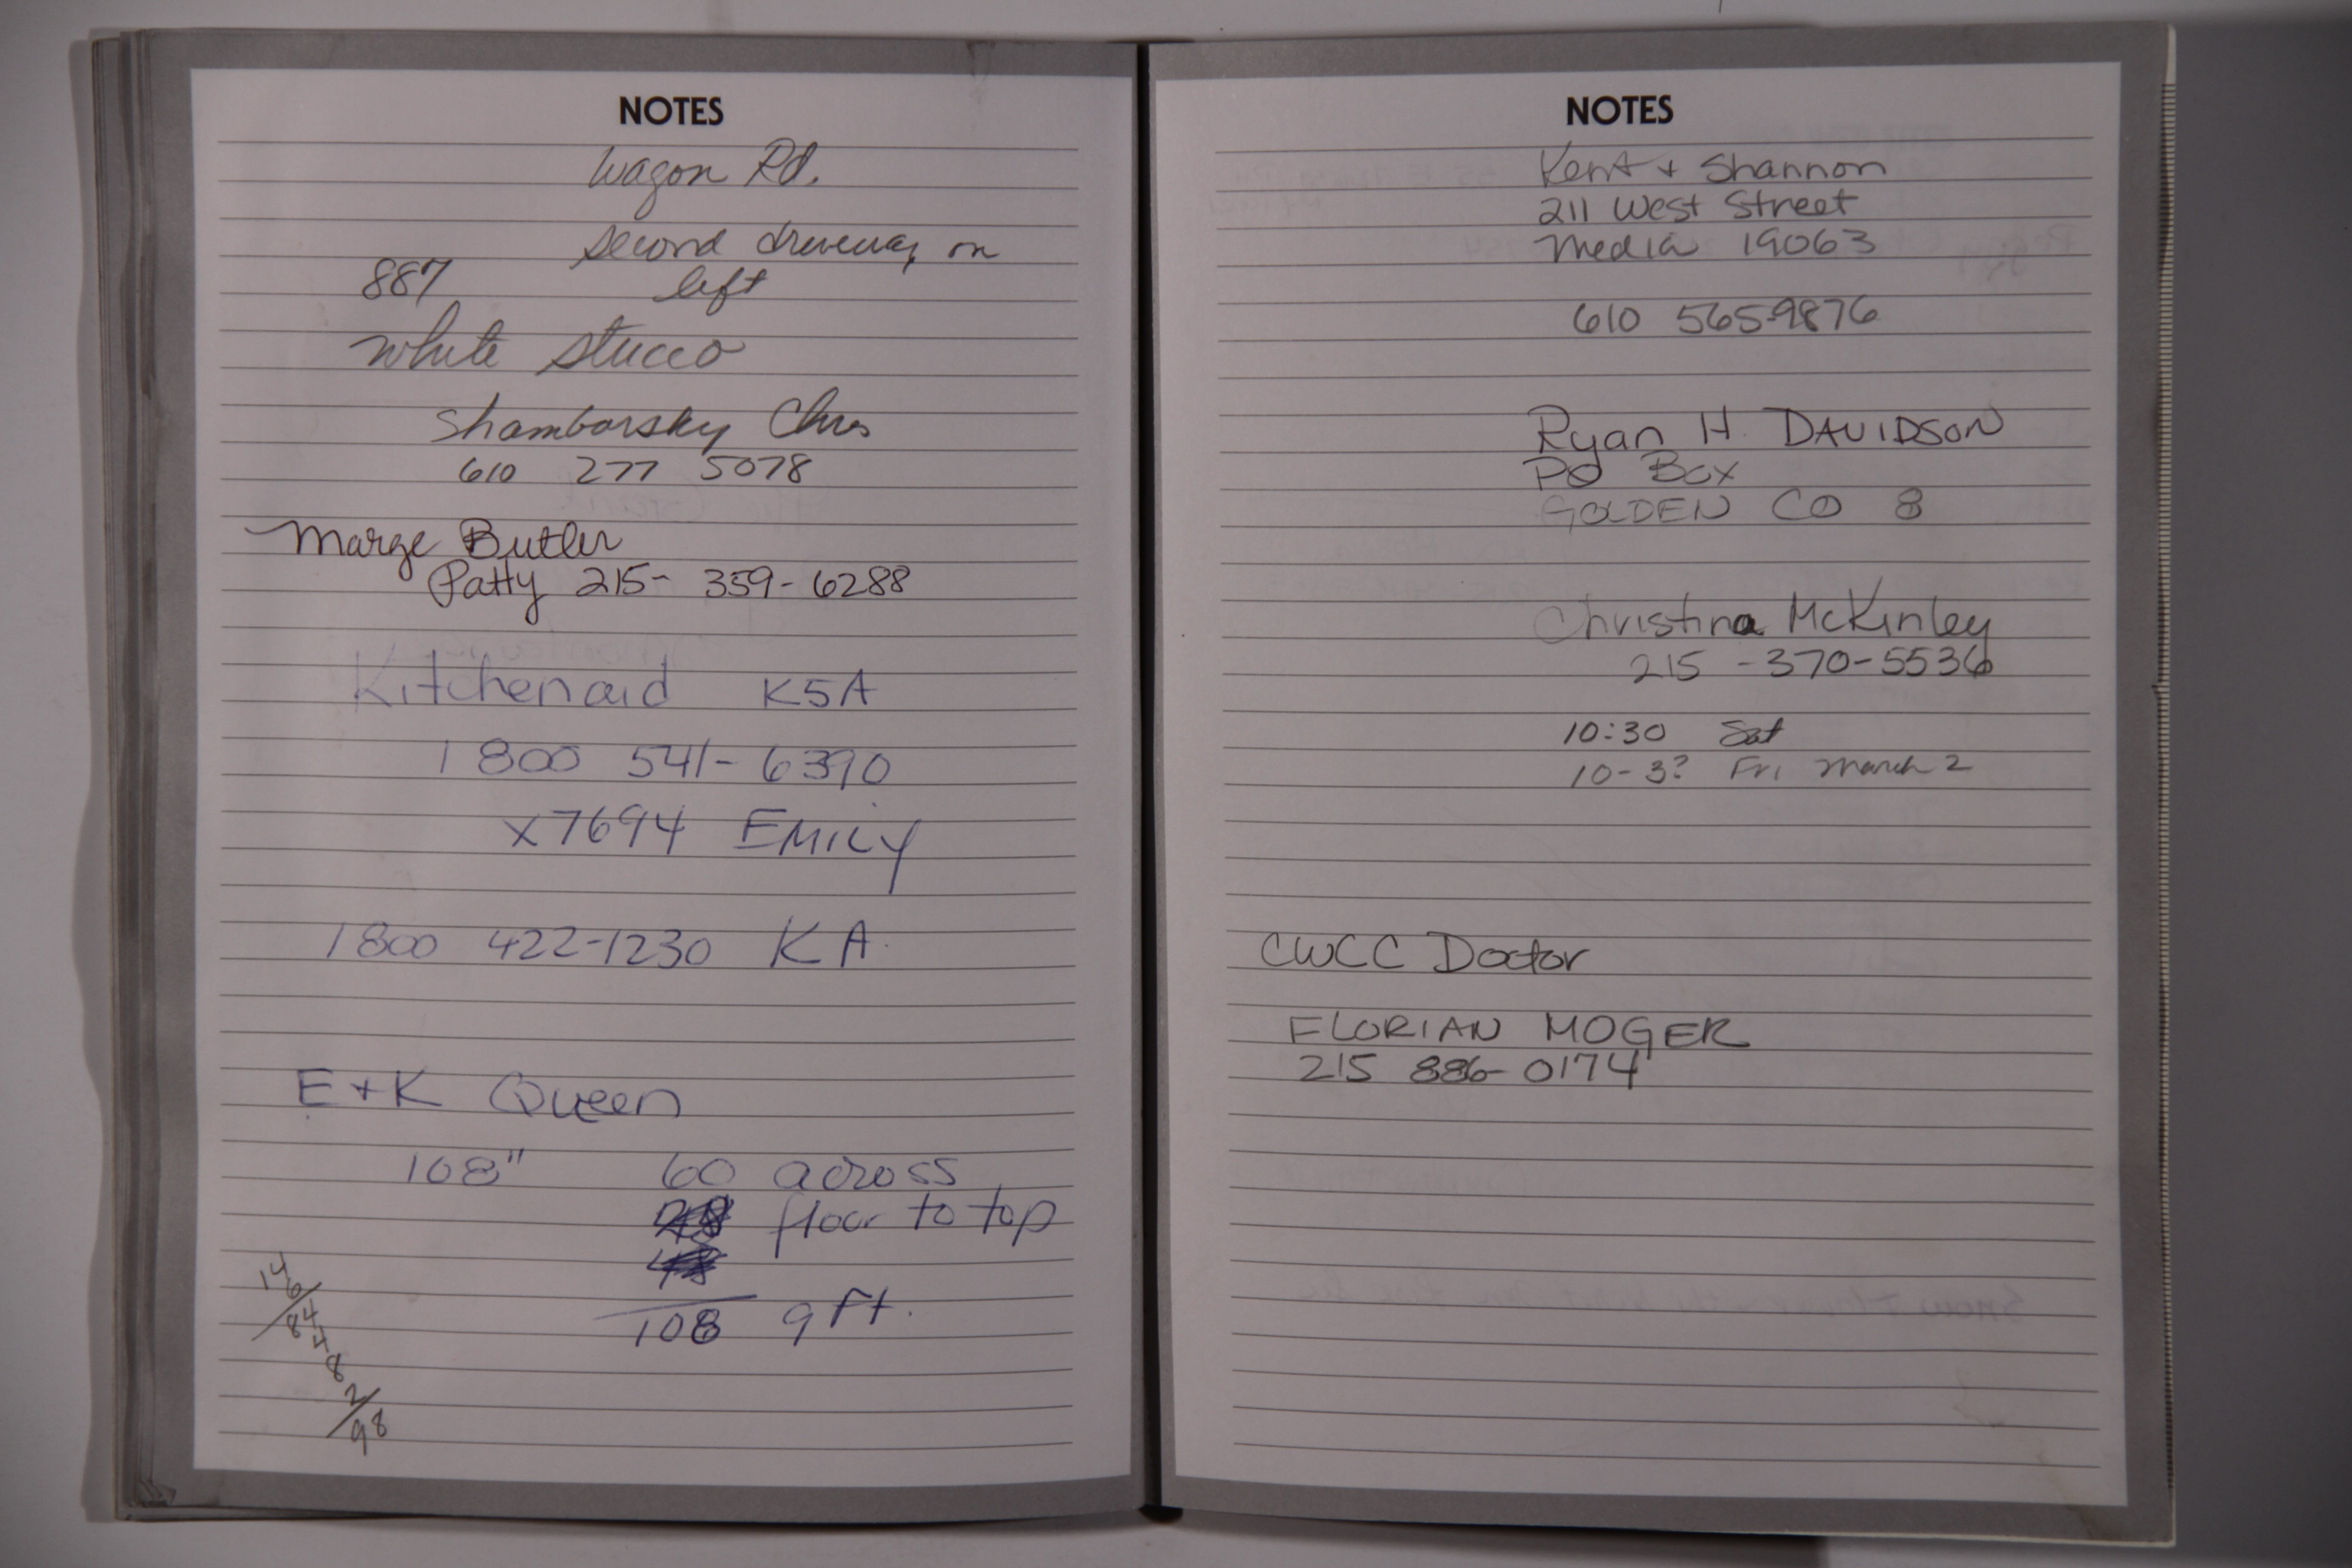 NOTES
Wagon Rd.
second driveway on
887 left
White stucco
Shamborsky Chris
610 277 5078
Marge Butler
Patty 215- 359-6288
Kitchenaid K5A
1 800 541-6390
x7694 EMILY
1 800 422-1230 KA
E + K Queen
108" 60 across
floor to top
108 9 ft.
14
6
84
4
8
2
98
NOTES
Kent + Shannon
211 West Street
Media 19063
610 565-9876
Ryan H. DAVIDSON
PO Box
GOLDEN CO 8
Christina McKinley
215 -370-5536
10:30 Sat
10-3? Fri March 2
CWCC Doctor
FLORIAN MOGER
215 886-0174